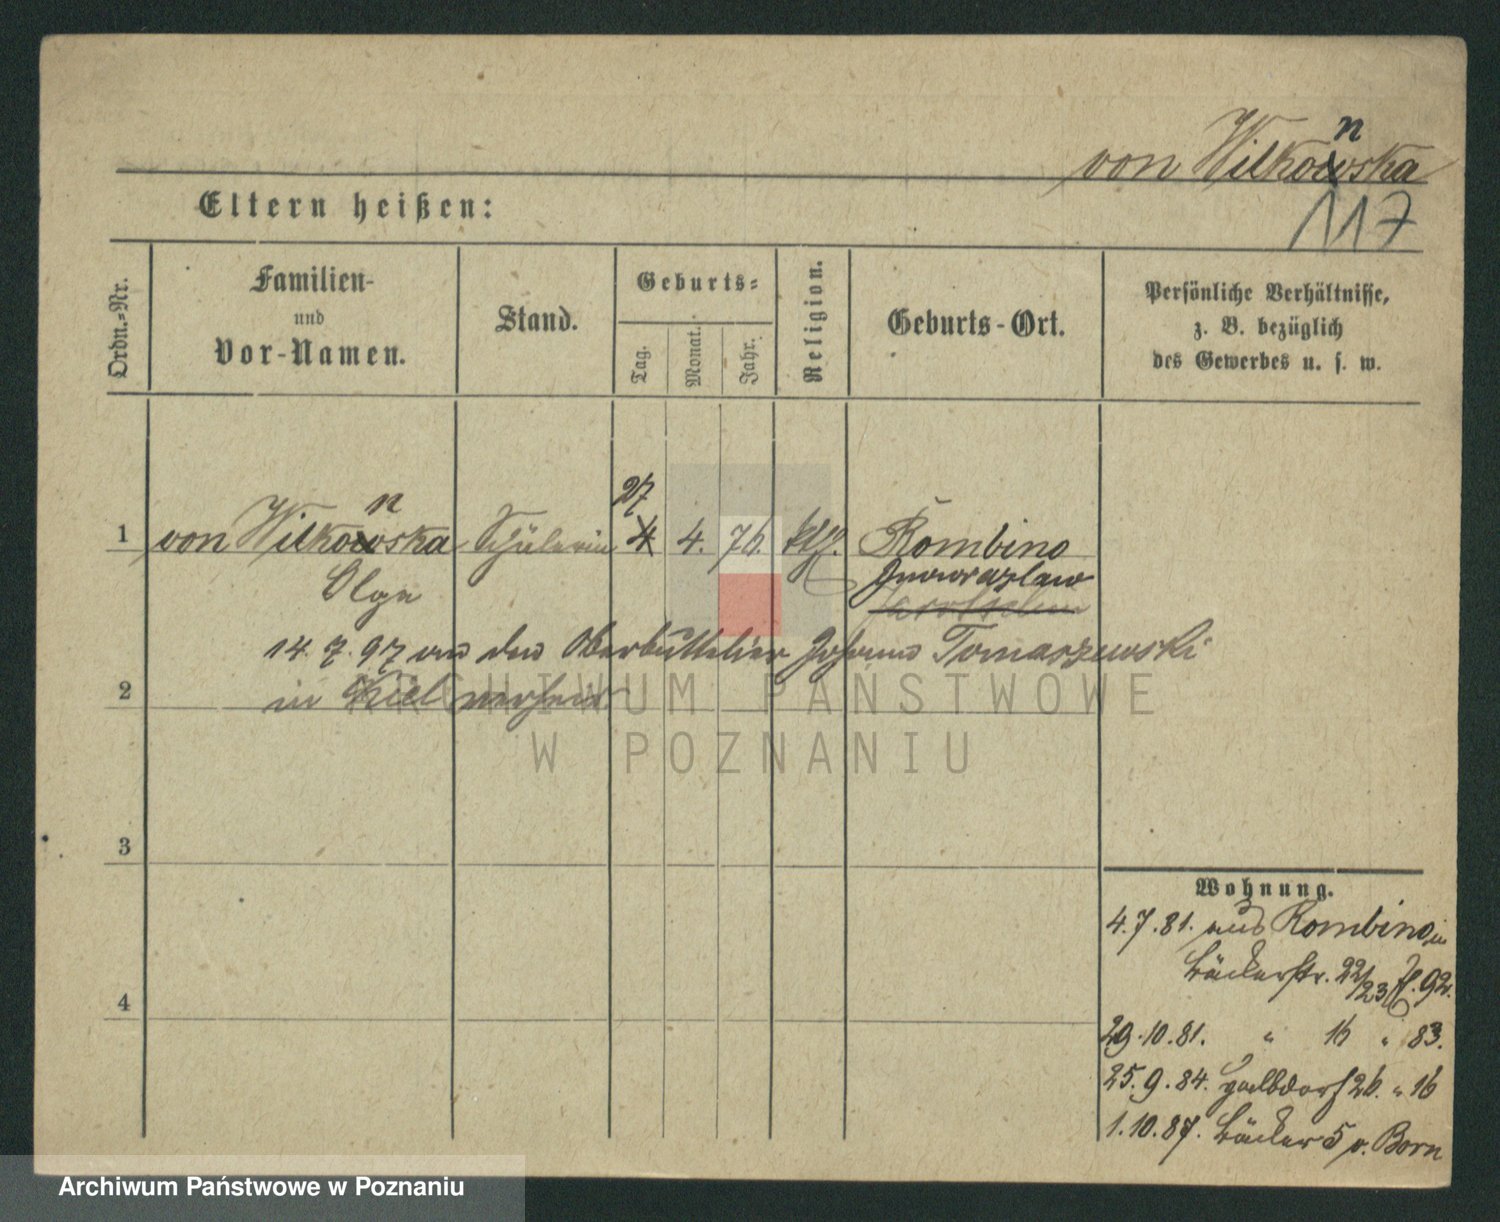 n
von Wilkowska
117
Eltern heißen:
Ordn.-Nr.
Familien-
und
Vor-Namen.
Stand.
Geburts-
Tag.
Monat.
Jahr.
Religion.
Geburts-Ort.
Persönliche Verhältnisse,
z. B. bezüglich
des Gewerbes u. s. w.
n 27
1 von Wilkowska Schülerin 4 4. 76. kth. Rombino
Olga Inowrazlaw
14.7.97 an den Oberbüttelier Johann Tomaszewski
2 in Kiel verheir
3
4
Wohnung.
4.7.81. aus Rombino in
Bäckerstr. 22/23 f. 92.
29.10.81. " 16 " 83.
25.9.84. Halbdorf 26. " 16
1.10.87. Bäcker 5 v. Born
ARCHIWUM PAŃSTWOWE
W POZNANIU
Archiwum Państwowe w Poznaniu